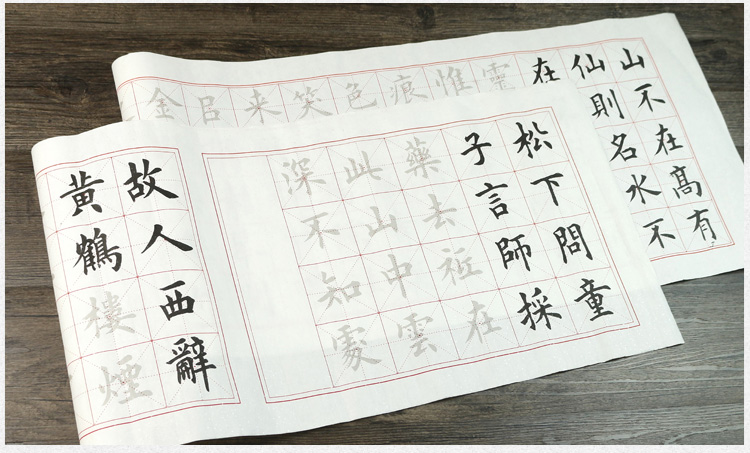 山不在髙有
仙則名水不
在
靈
惟
痕
色
笑
来
吕
金
松下問童
子言師採
藥去祗在
此山中雲
深不知處
故人西辭
黄鶴樓煙